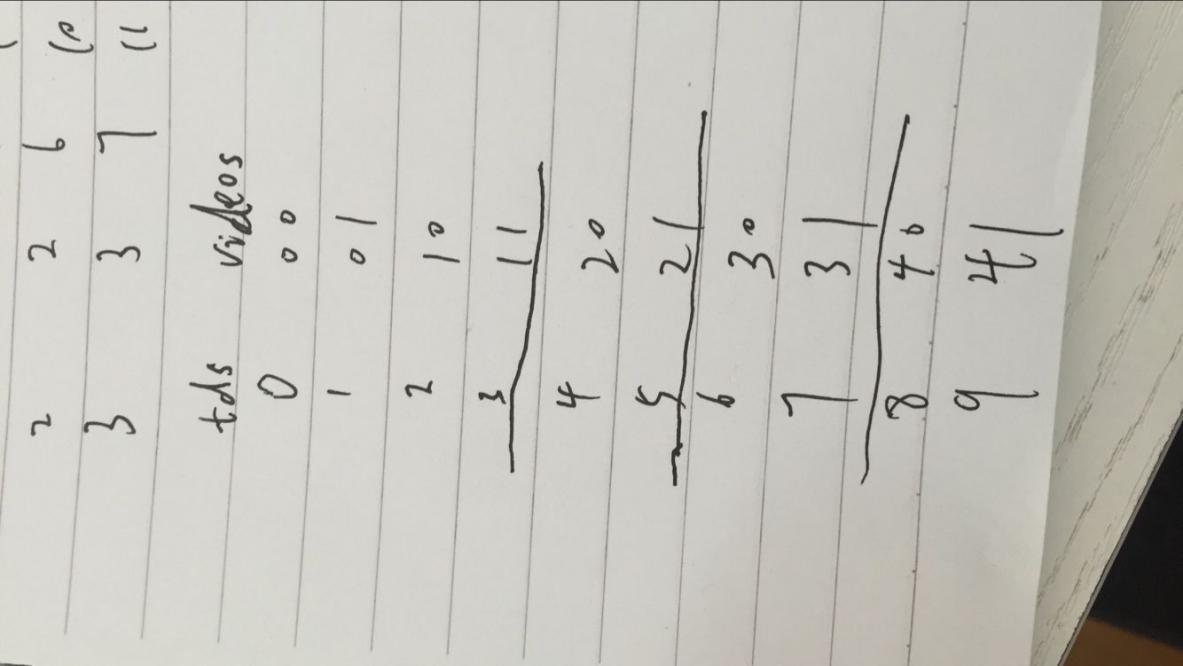 2 2 6 10
3 3 7 11
tds videos
0 0 0
1 0 1
2 1 0
3 1 1
4 2 0
5 2 1
6 3 0
7 3 1
8 4 0
9 4 1